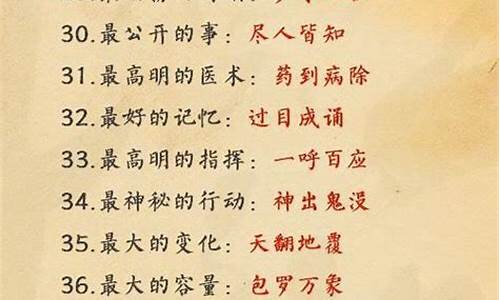 30.最公开的事：尽人皆知
31.最高明的医术：药到病除
32.最好的记忆：过目成诵
33.最高明的指挥：一呼百应
34.最神秘的行动：神出鬼没
35.最大的变化：天翻地覆
36.最大的容量：包罗万象